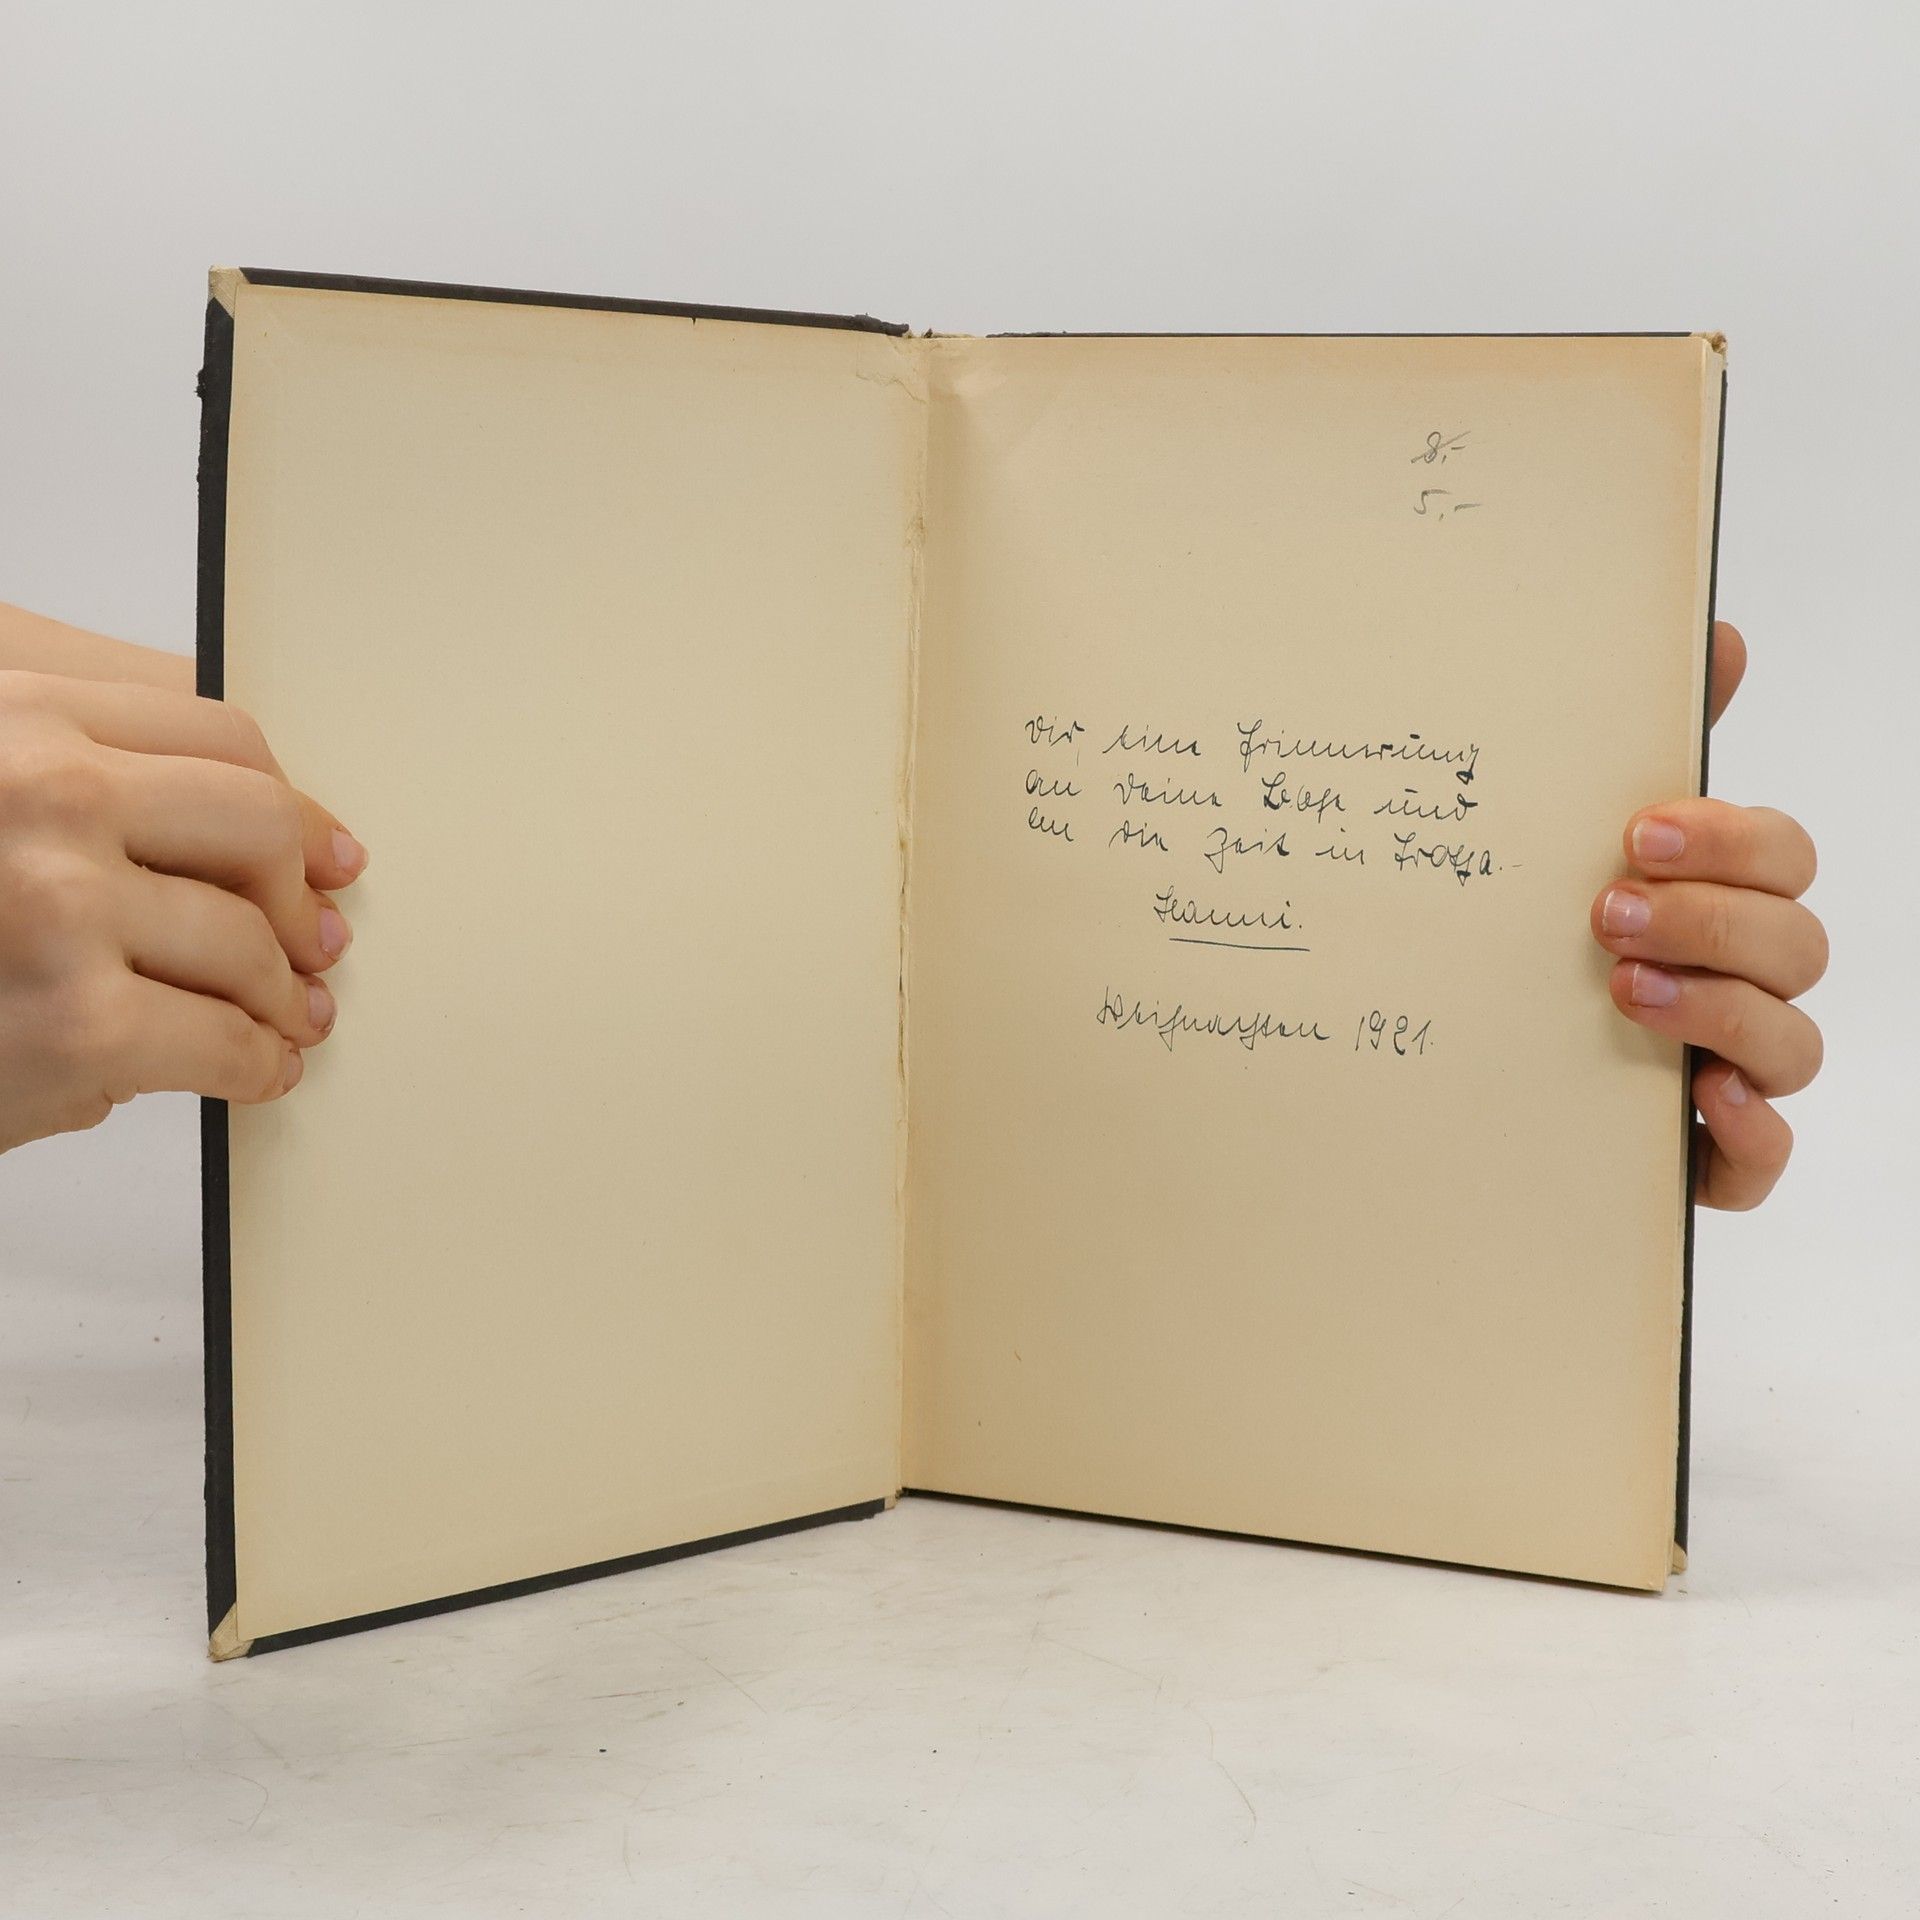 8,-
5,-
Dir, eine Erinnerung
an deine und
an die Zeit in
Hanni.
Weihnachten 1921.